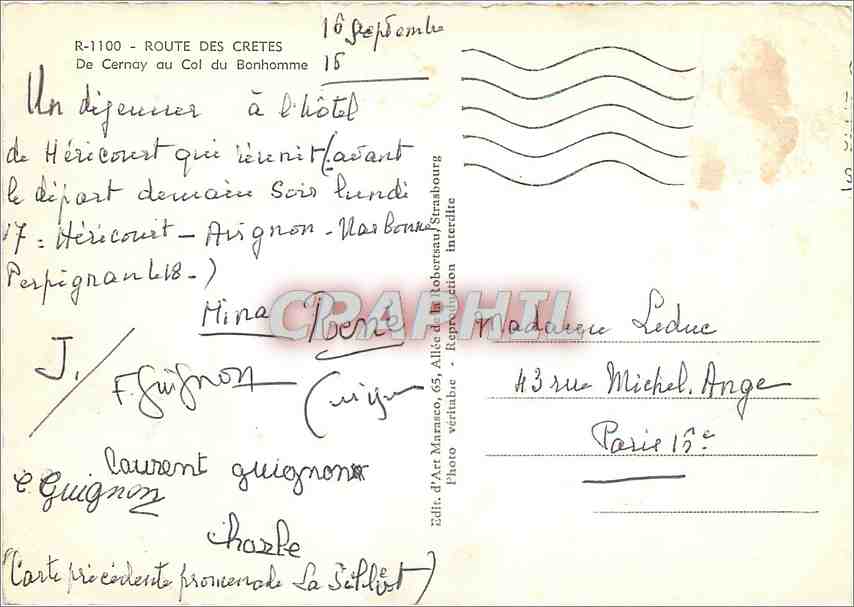 R-1100 - ROUTE DES CRETES
De Cernay au Col du Bonhomme
16 Septembre
15
Un déjeuner à l'hôtel
de Héricourt qui réunit (avant
le départ demain soir lundi
17 = Héricourt - Avignon - Narbonne
Perpignan le 18 -)
Mina René
J.
F. Guignon
Laurent guignon
C. Guignon
Charle
(Carte précédente promenade La
Edit. d'Art Marasco, 65, Allée de la Robertsau, Strasbourg
Photo véritable - Reproduction interdite
CPAPHIL
Madame Leduc
43 rue Michel. Ange
Paris 15e